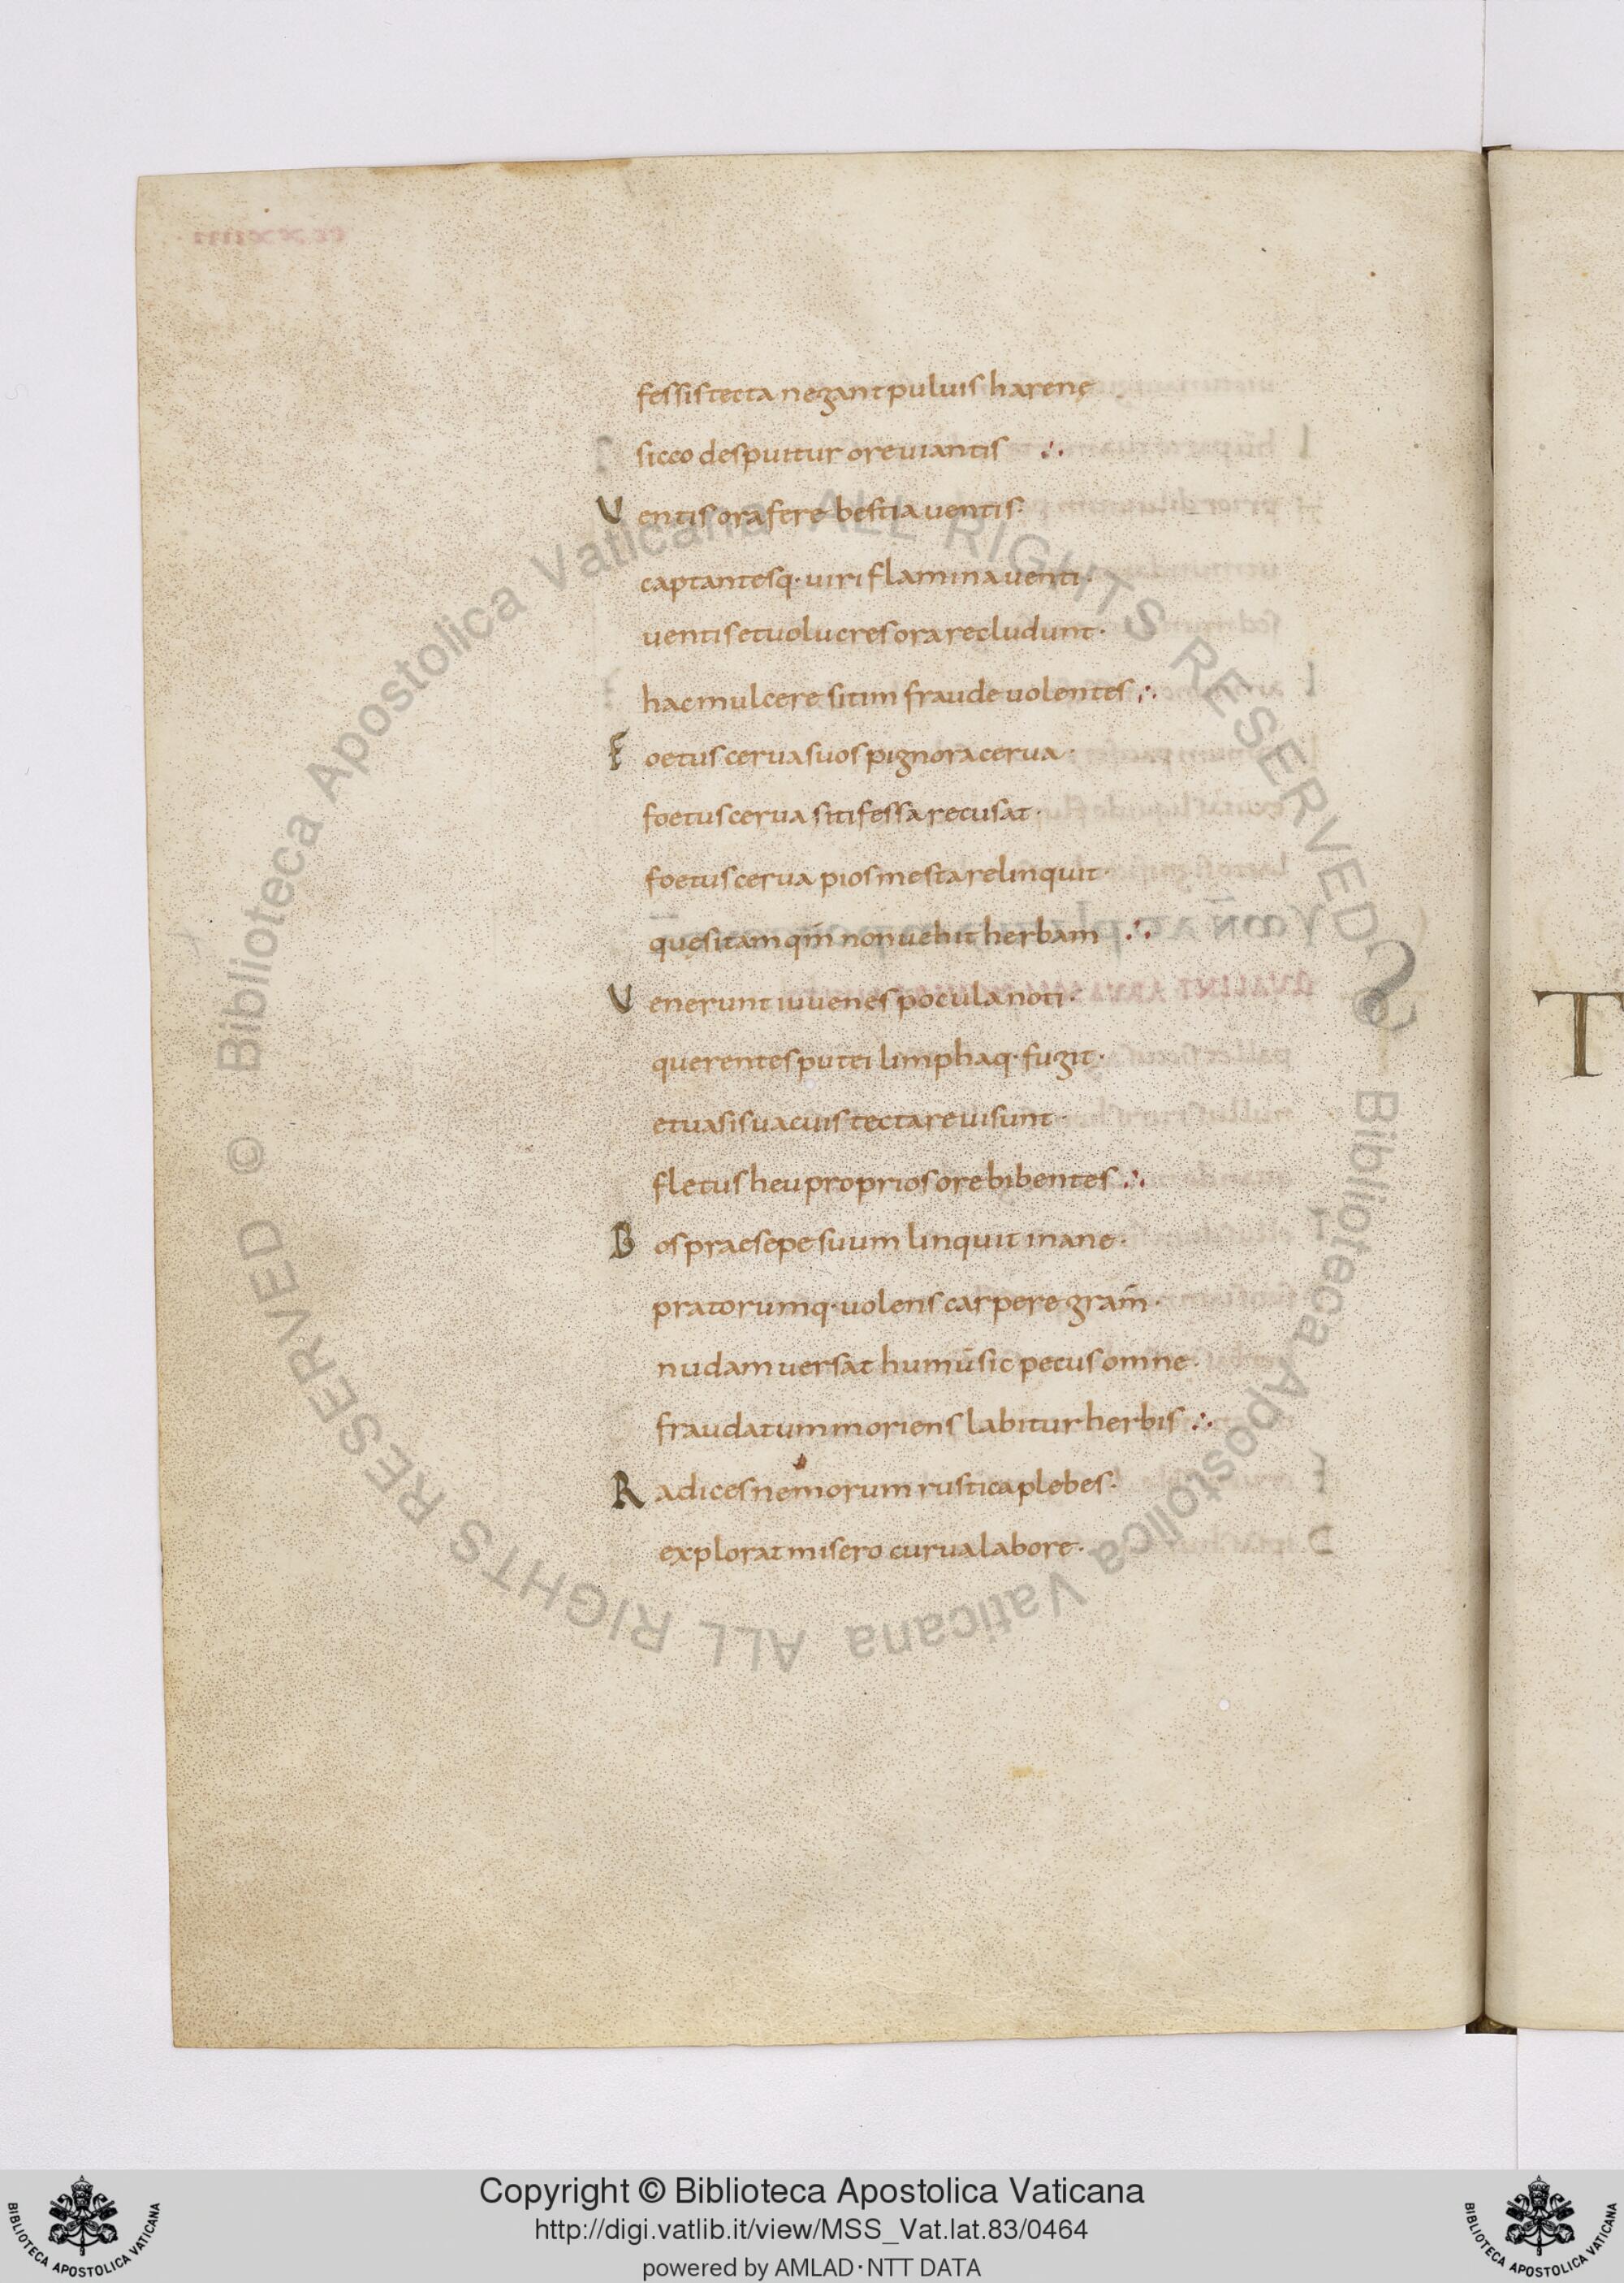 fessis tecta negant puluis harenę
sicco despuitur ore uiantis ∴
Uentis ora fere bestia uentis·
captantesq· uiri flamina uenti·
uentis et uolucres ora recludunt·
hac mulcere sitim fraude uolentes ∴
Foetus cerua suos pignora cerua·
foetus cerua siti fessa recusat·
foetus cerua pios mesta relinquit·
quęsitam qm̄ non uehit herbam ∴
Uenerunt iuuenes pocula noti·
querentes putei limphaq· fugit·
et uasis uacuis tecta reuisunt·
fletus heu proprios ore bibentes ∴
Bos praesepe suum linquit inane·
pratorumq· uolens carpere gram̄·
nudam uersat humū sic pecus omne·
fraudatum moriens labitur herbis ∴
Radices nemorum rustica plebes·
explorat misero curua labore·
T
© Biblioteca Apostolica Vaticana ALL RIGHTS RESERVED
© Biblioteca Apostolica Vaticana ALL RIGHTS RESERVED
Copyright © Biblioteca Apostolica Vaticana
http://digi.vatlib.it/view/MSS_Vat.lat.83/0464
powered by AMLAD·NTT DATA
BIBLIOTECA APOSTOLICA VATICANA
BIBLIOTECA APOSTOLICA VATICANA